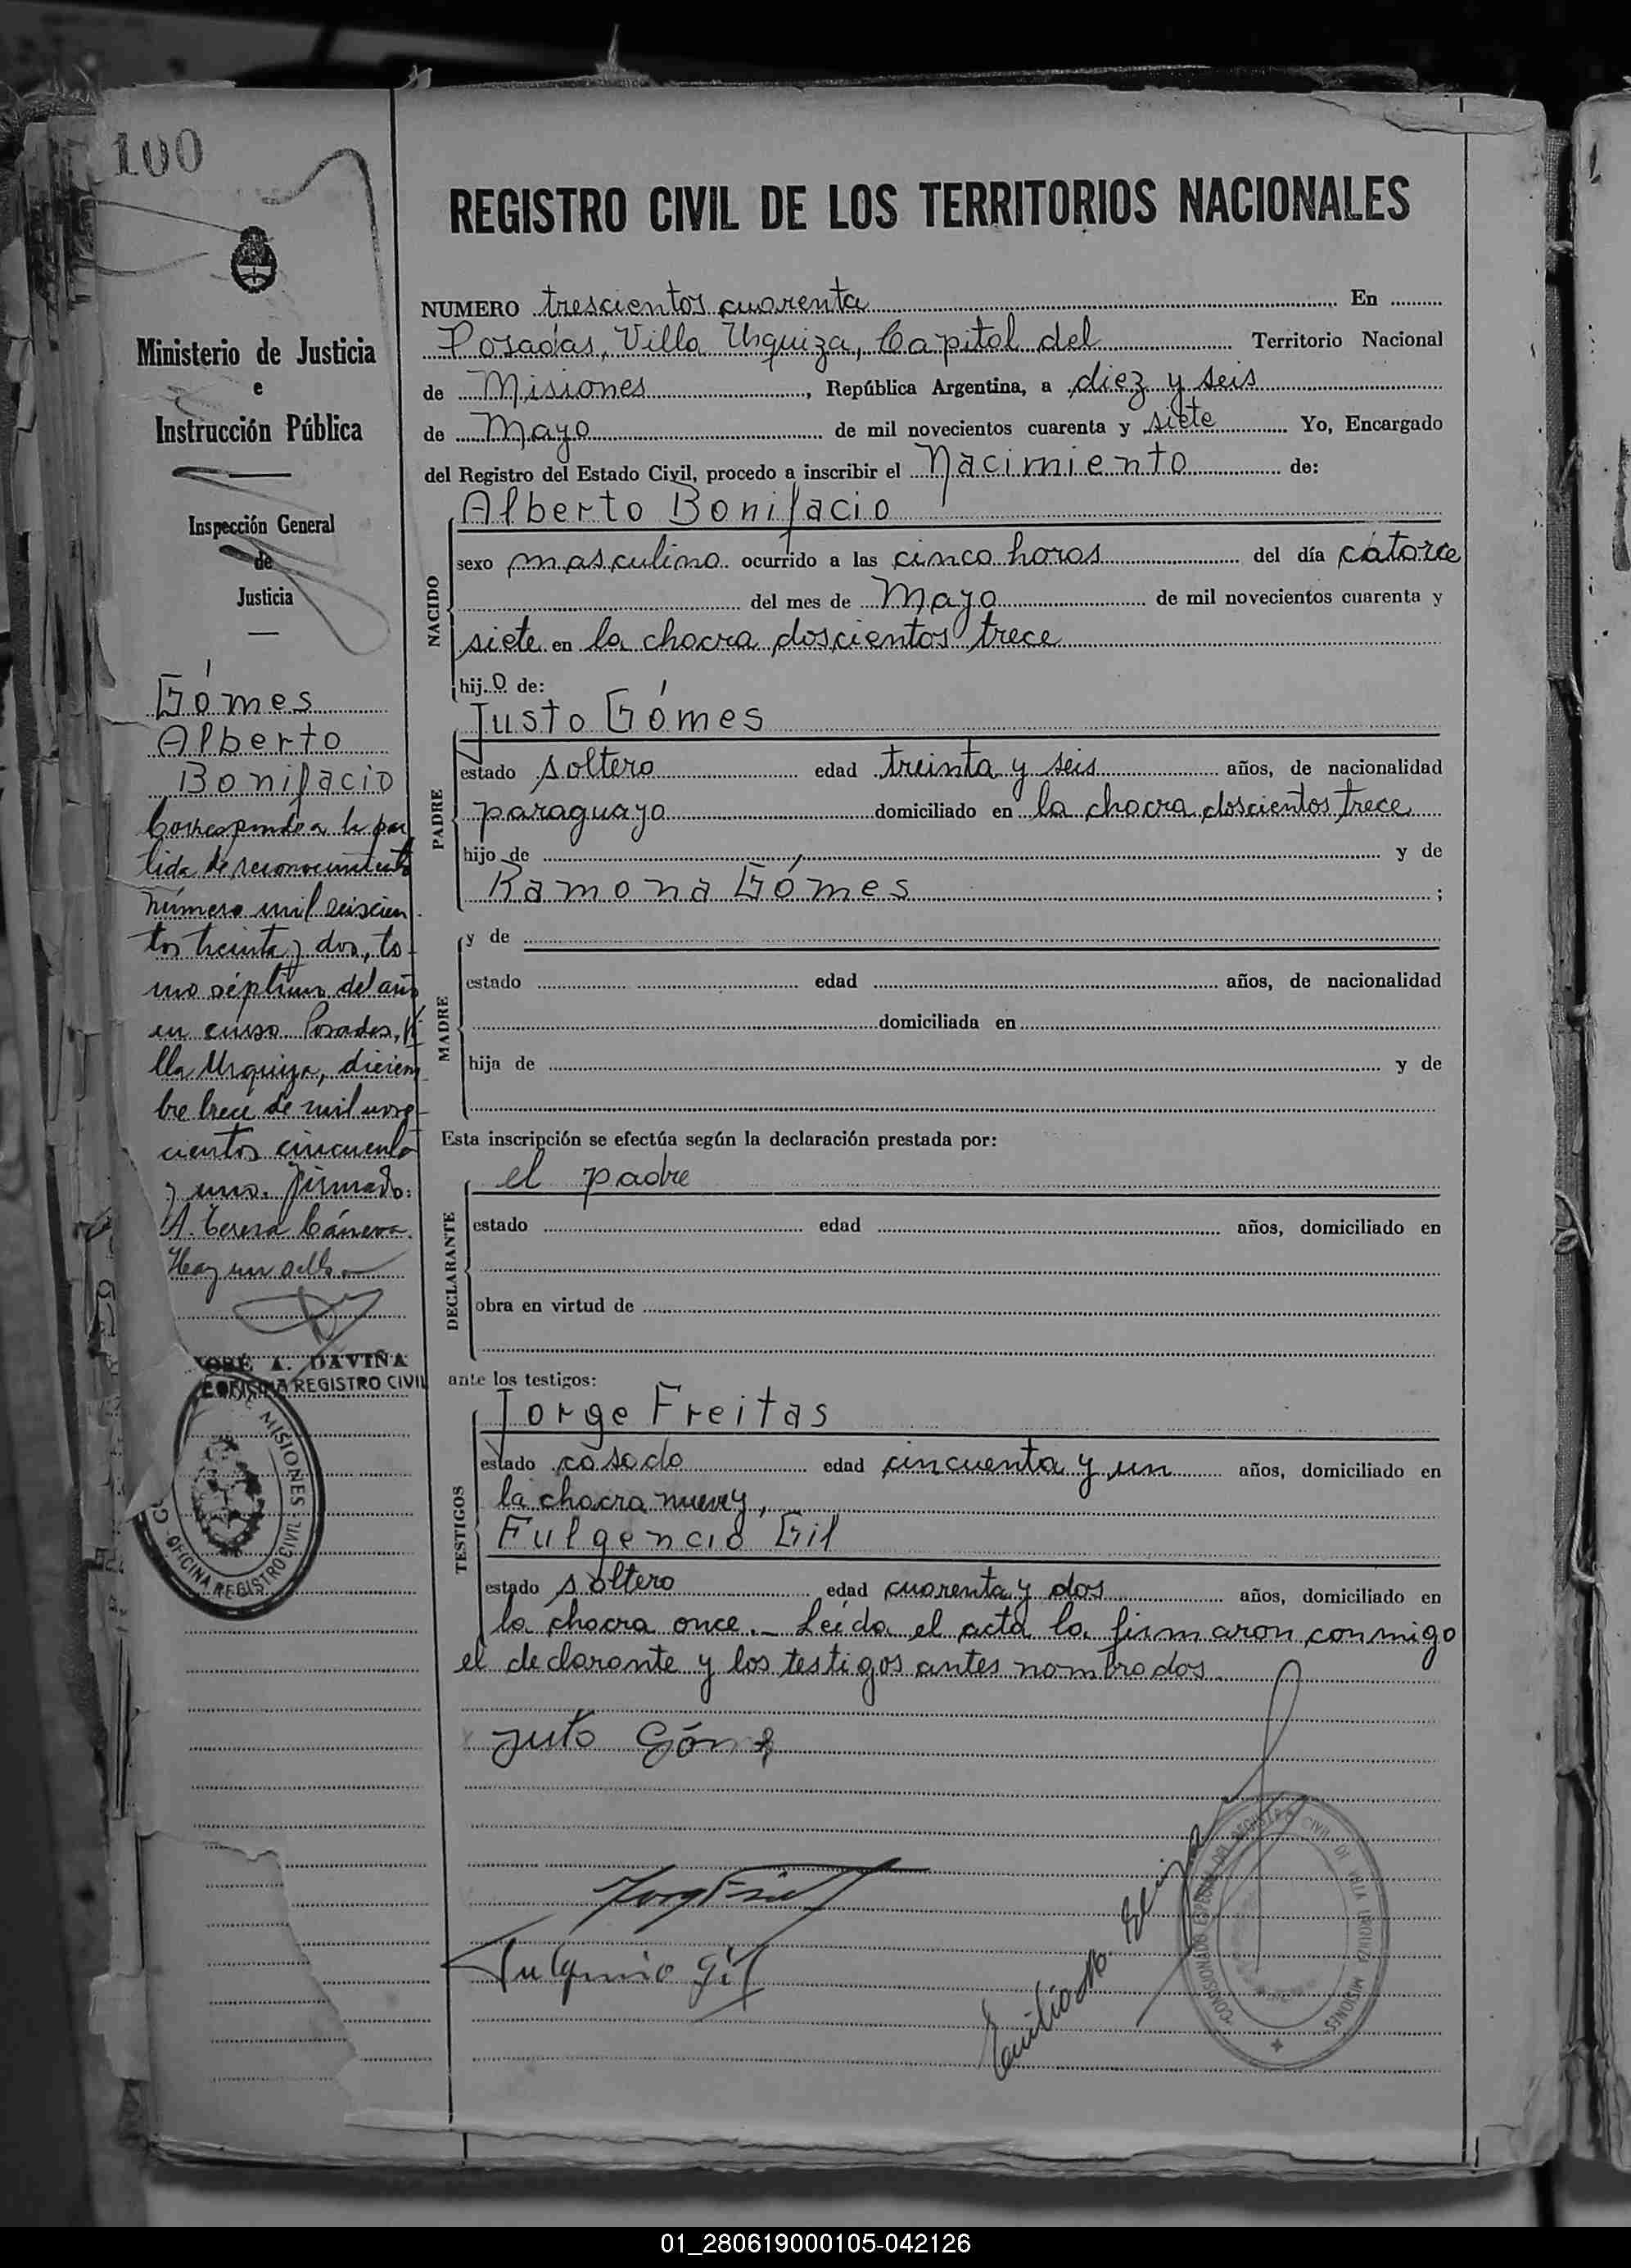 100
Ministerio de Justicia
e
Instrucción Pública
Inspección General
de
Justicia
Gómes
Alberto
Bonifacio
Corresponde a la par
tida de reconocimiento
número mil seiscien
tos treinta y dos, to-
mo séptimo del año
en curso. Posadas, Vi
lla Urquiza, diciem
bre trece de mil nove-
cientos cincuenta
y uno. Firmado:
A. Teresa Cáneva.
Hay un sello
JOSÉ A. DAVIÑA
OFICINA REGISTRO CIVIL
MISIONES
OFICINA REGISTRO CIVIL
REGISTRO CIVIL DE LOS TERRITORIOS NACIONALES
NUMERO trescientos cuarenta En
Posadas, Villa Urquiza, Capital del Territorio Nacional
de Misiones, República Argentina, a diez y seis
de Mayo de mil novecientos cuarenta y siete Yo, Encargado
del Registro del Estado Civil, procedo a inscribir el Nacimiento de:
Alberto Bonifacio
NACIDO
sexo masculino ocurrido a las cinco horas del día catorce
del mes de Mayo de mil novecientos cuarenta y
siete en la chacra doscientos trece
hijo de:
Justo Gómes
PADRE
estado soltero edad treinta y seis años, de nacionalidad
paraguayo domiciliado en la chacra doscientos trece
hijo de y de
Ramona Gómes ;
MADRE
y de
estado edad años, de nacionalidad
domiciliada en
hija de y de
Esta inscripción se efectúa según la declaración prestada por:
el padre
DECLARANTE
estado edad años, domiciliado en
obra en virtud de
ante los testigos:
Jorge Freitas
TESTIGOS
estado casado edad cincuenta y un años, domiciliado en
la chacra nueve y,
Fulgencio Gil
estado soltero edad cuarenta y dos años, domiciliado en
la chacra once.- Leída el acta la firmaron conmigo
el declarante y los testigos antes nombrados.
Justo Góm
Fulgencio Gil
Emilio
COMISIONADO ESPECIAL DEL REGISTRO CIVIL DE VILLA URQUIZA MISIONES
01_280619000105-042126